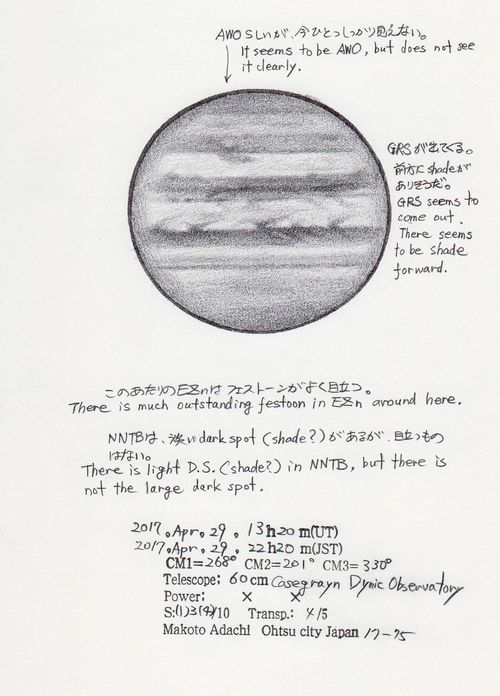 AWOらしいが、今ひとつしっかり見えない。
It seems to be AWO, but does not see
it clearly.
GRSが出てくる。
前方にshadeが
ありそうだ。
GRS seems to
come out.
There seems
to be shade
forward.
このあたりのEZnはフェストーンがよく目立つ。
There is much outstanding festoon in EZn around here.
NNTBは、淡いdark spot (shade?)があるが、目立つもの
はない。
There is light D.S. (shade?) in NNTB, but there is
not the large dark spot.
2017。Apr。29 。13h20 m(UT)
2017。Apr。29 。22h20 m(JST)
CM1=268° CM2=201° CM3=330°
Telescope: 60cm Casegrayn Dynic Observatory
Power: × ×
S:(1)3(4)/10 Transp.: 4/5
Makoto Adachi Ohtsu city Japan 17-75